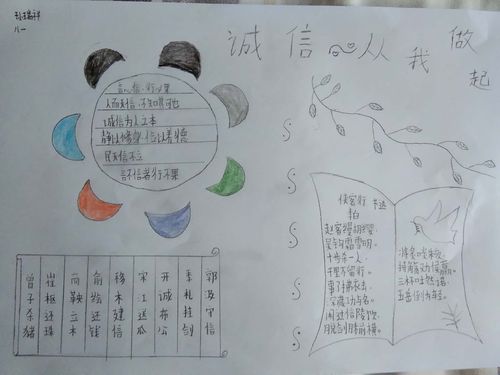 八一
诚信～从我做起
言必信，行必果
人而无信，不知其可也
诚信为人之本
静以修身，俭以养德
民无信不立
言不信者行不果
侠客行 节选
李白
赵客缦胡缨，
吴钩霜雪明。
十步杀一人，
千里不留行。
事了拂衣去，
深藏功与名。
闲过信陵饮，
脱剑膝前横。
三杯吐然诺，
五岳倒为轻。
曾子杀猪
崔枢还珠
商鞅立木
俞绘还钱
移木建信
宋工送瓜
开诚布公
季札挂剑
郭汲守信